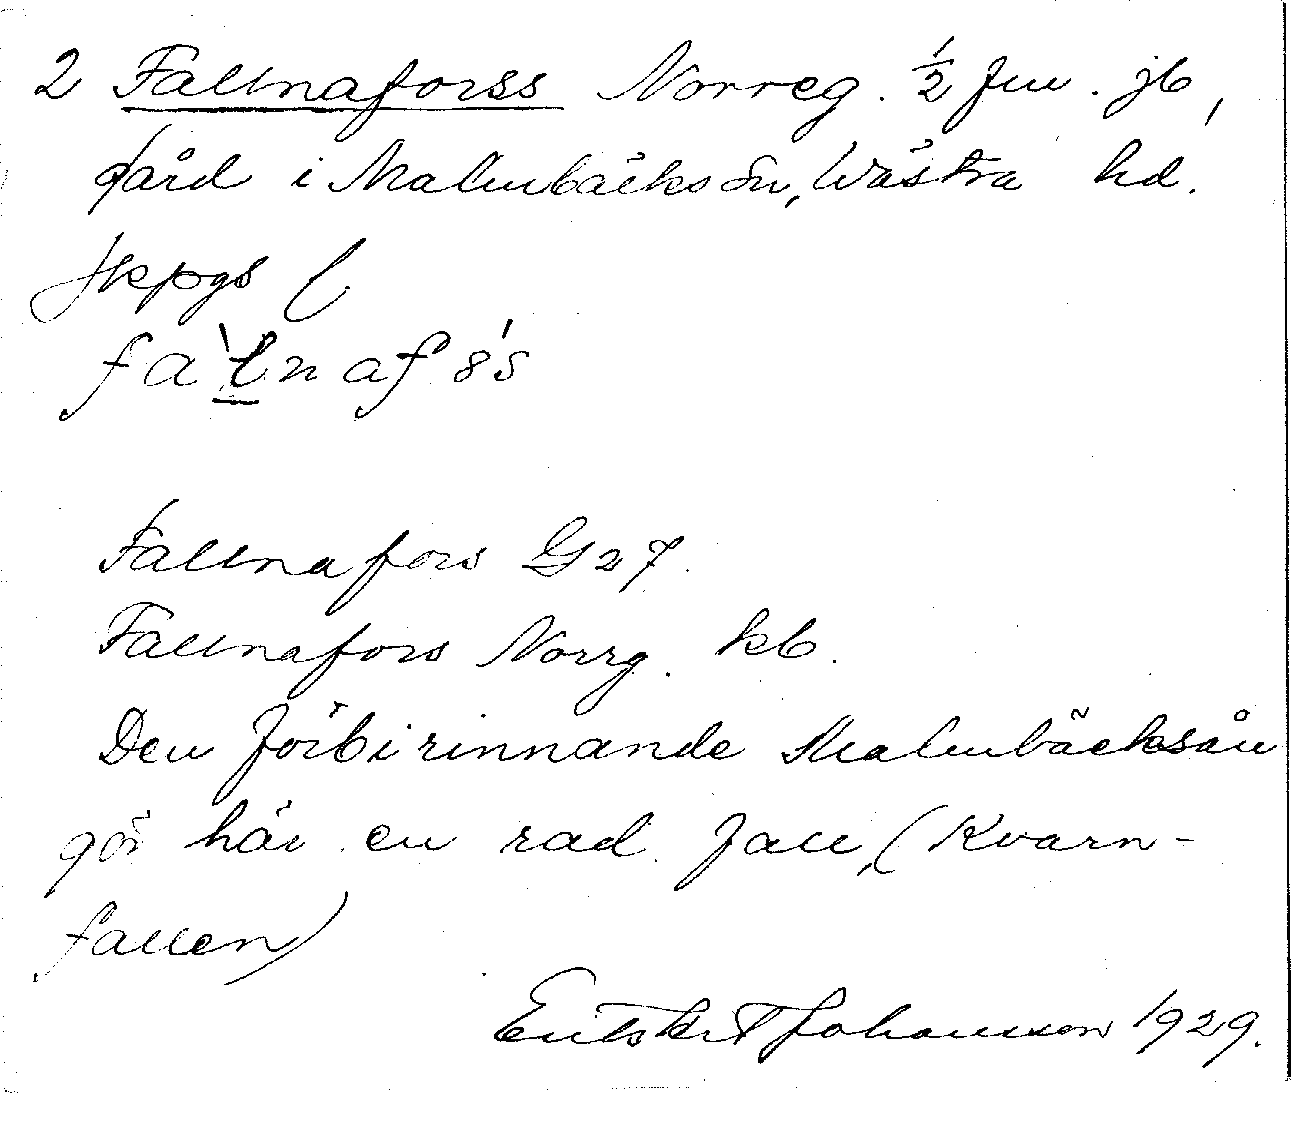 2 Fallnaforss Norreg. 1/2 fm. jb,
gård i Malmbäcks sn, Västra hd.
Jkpgs l
fa`lnafo´s
Fallnafors G 27.
Fallnafors Norrg. kb.
Den förbirinnande Malmbäcksån
gör här en rad fall, (Kvarn-
fallen)
Johansson 1929.